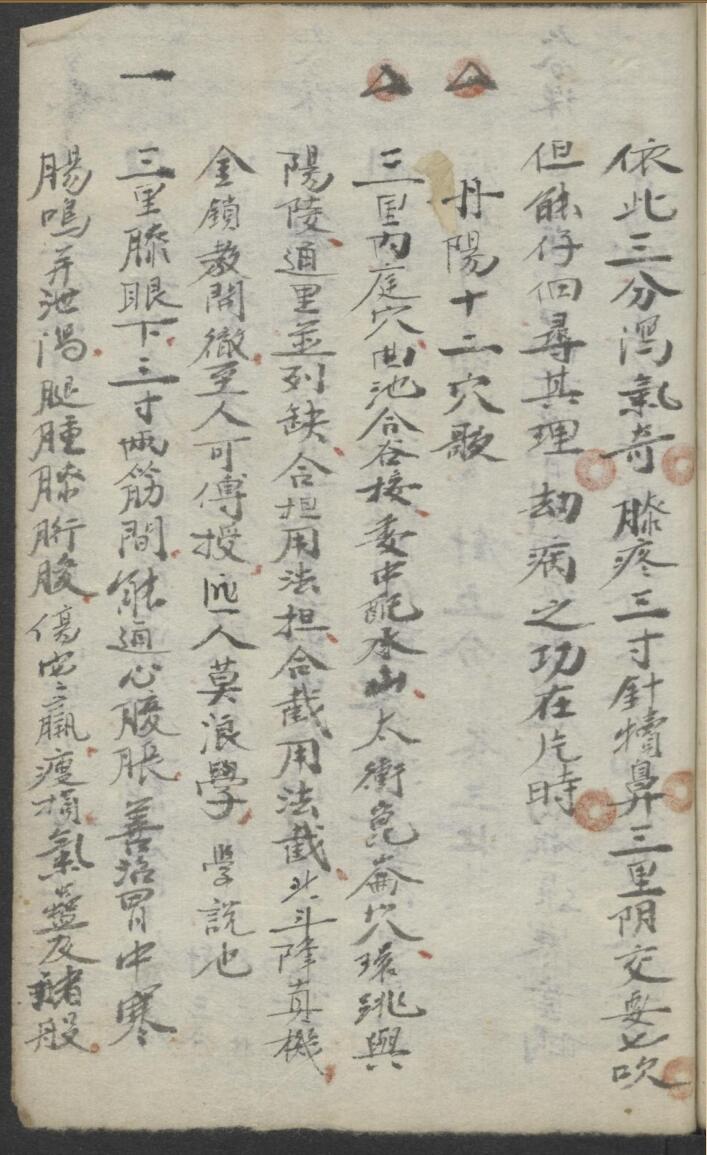 依此三分瀉氣奇 膝疼三寸針犢鼻三里阴交要七吹
但能仔佪尋其理 劫病之功在片時
丹陽十二穴歌
三里內庭穴曲池合谷接委中配承山太衝崑崙穴環跳與
陽陵通里並列缺合担用法担合截用法截北斗降真機
金鎖教開徹至人可傅授匪人莫浪學 學說也
一 三里膝眼下三寸兩筋間能通心腹脹善治胃中寒
腸鳴并泄瀉腿腫膝胻酸傷寒羸瘦損氣蠱及諸般